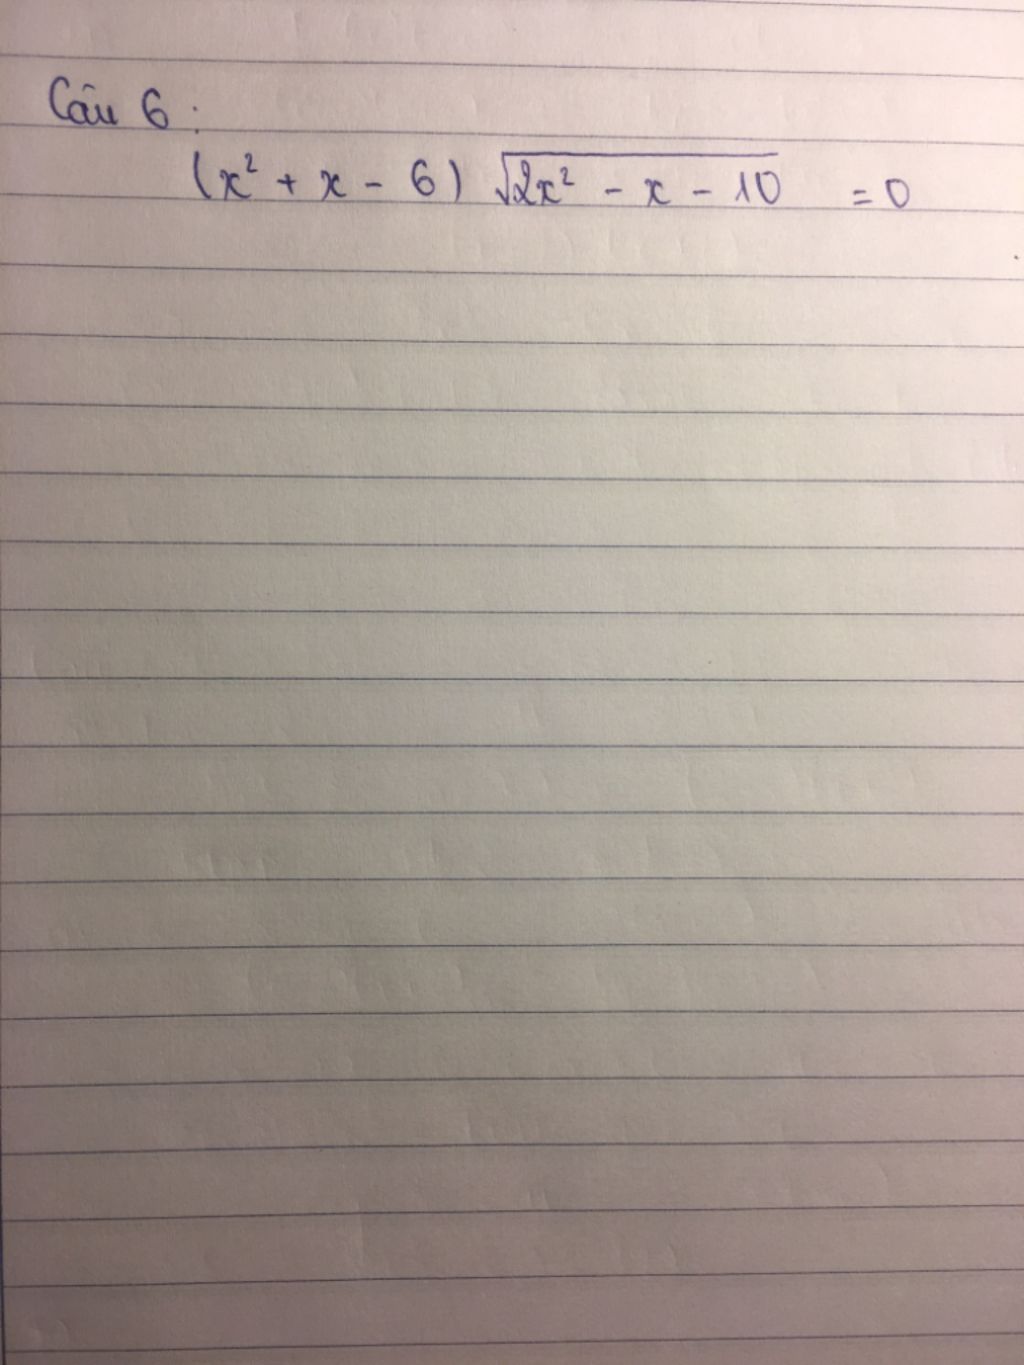 Câu 6 :
(x² + x - 6) √(2x² - x - 10) = 0